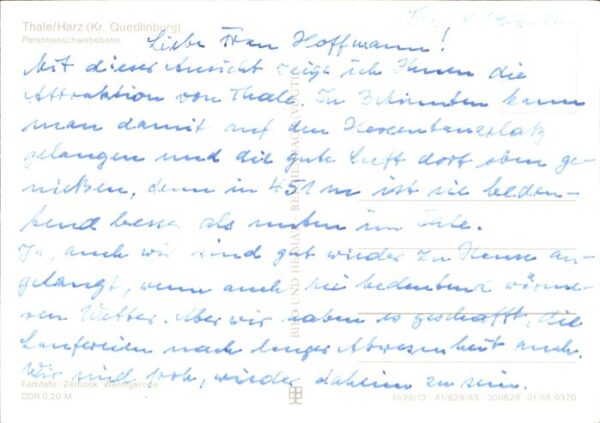 Thale/Harz (Kr. Quedlinburg)
Personenschwebebahn
Liebe Frau Hoffmann!
Mit dieser Ansicht zeige ich Ihnen die
Attraktion von Thale. In 3 Minuten kann
man damit auf den Hexentanzplatz
gelangen und die gute Luft dort oben ge-
nießen, denn in 451 m ist sie bedeu-
tend besser als unten im Tale.
Ja, auch wir sind gut wieder zu Hause an-
gelangt, wenn auch bei bedeutend wärme-
ren Wetter. Aber wir haben es geschafft, die
Laufereien nach langer Abwesenheit auch.
Wir sind froh, wieder daheim zu sein.
BILD UND HEIMAT REICHENBACH (VOGTL)
Farbfoto: Zerback, Wernigerode
DDR 0,20 M
III/26/13 · A1/829/83 · 300829 01 08 0370